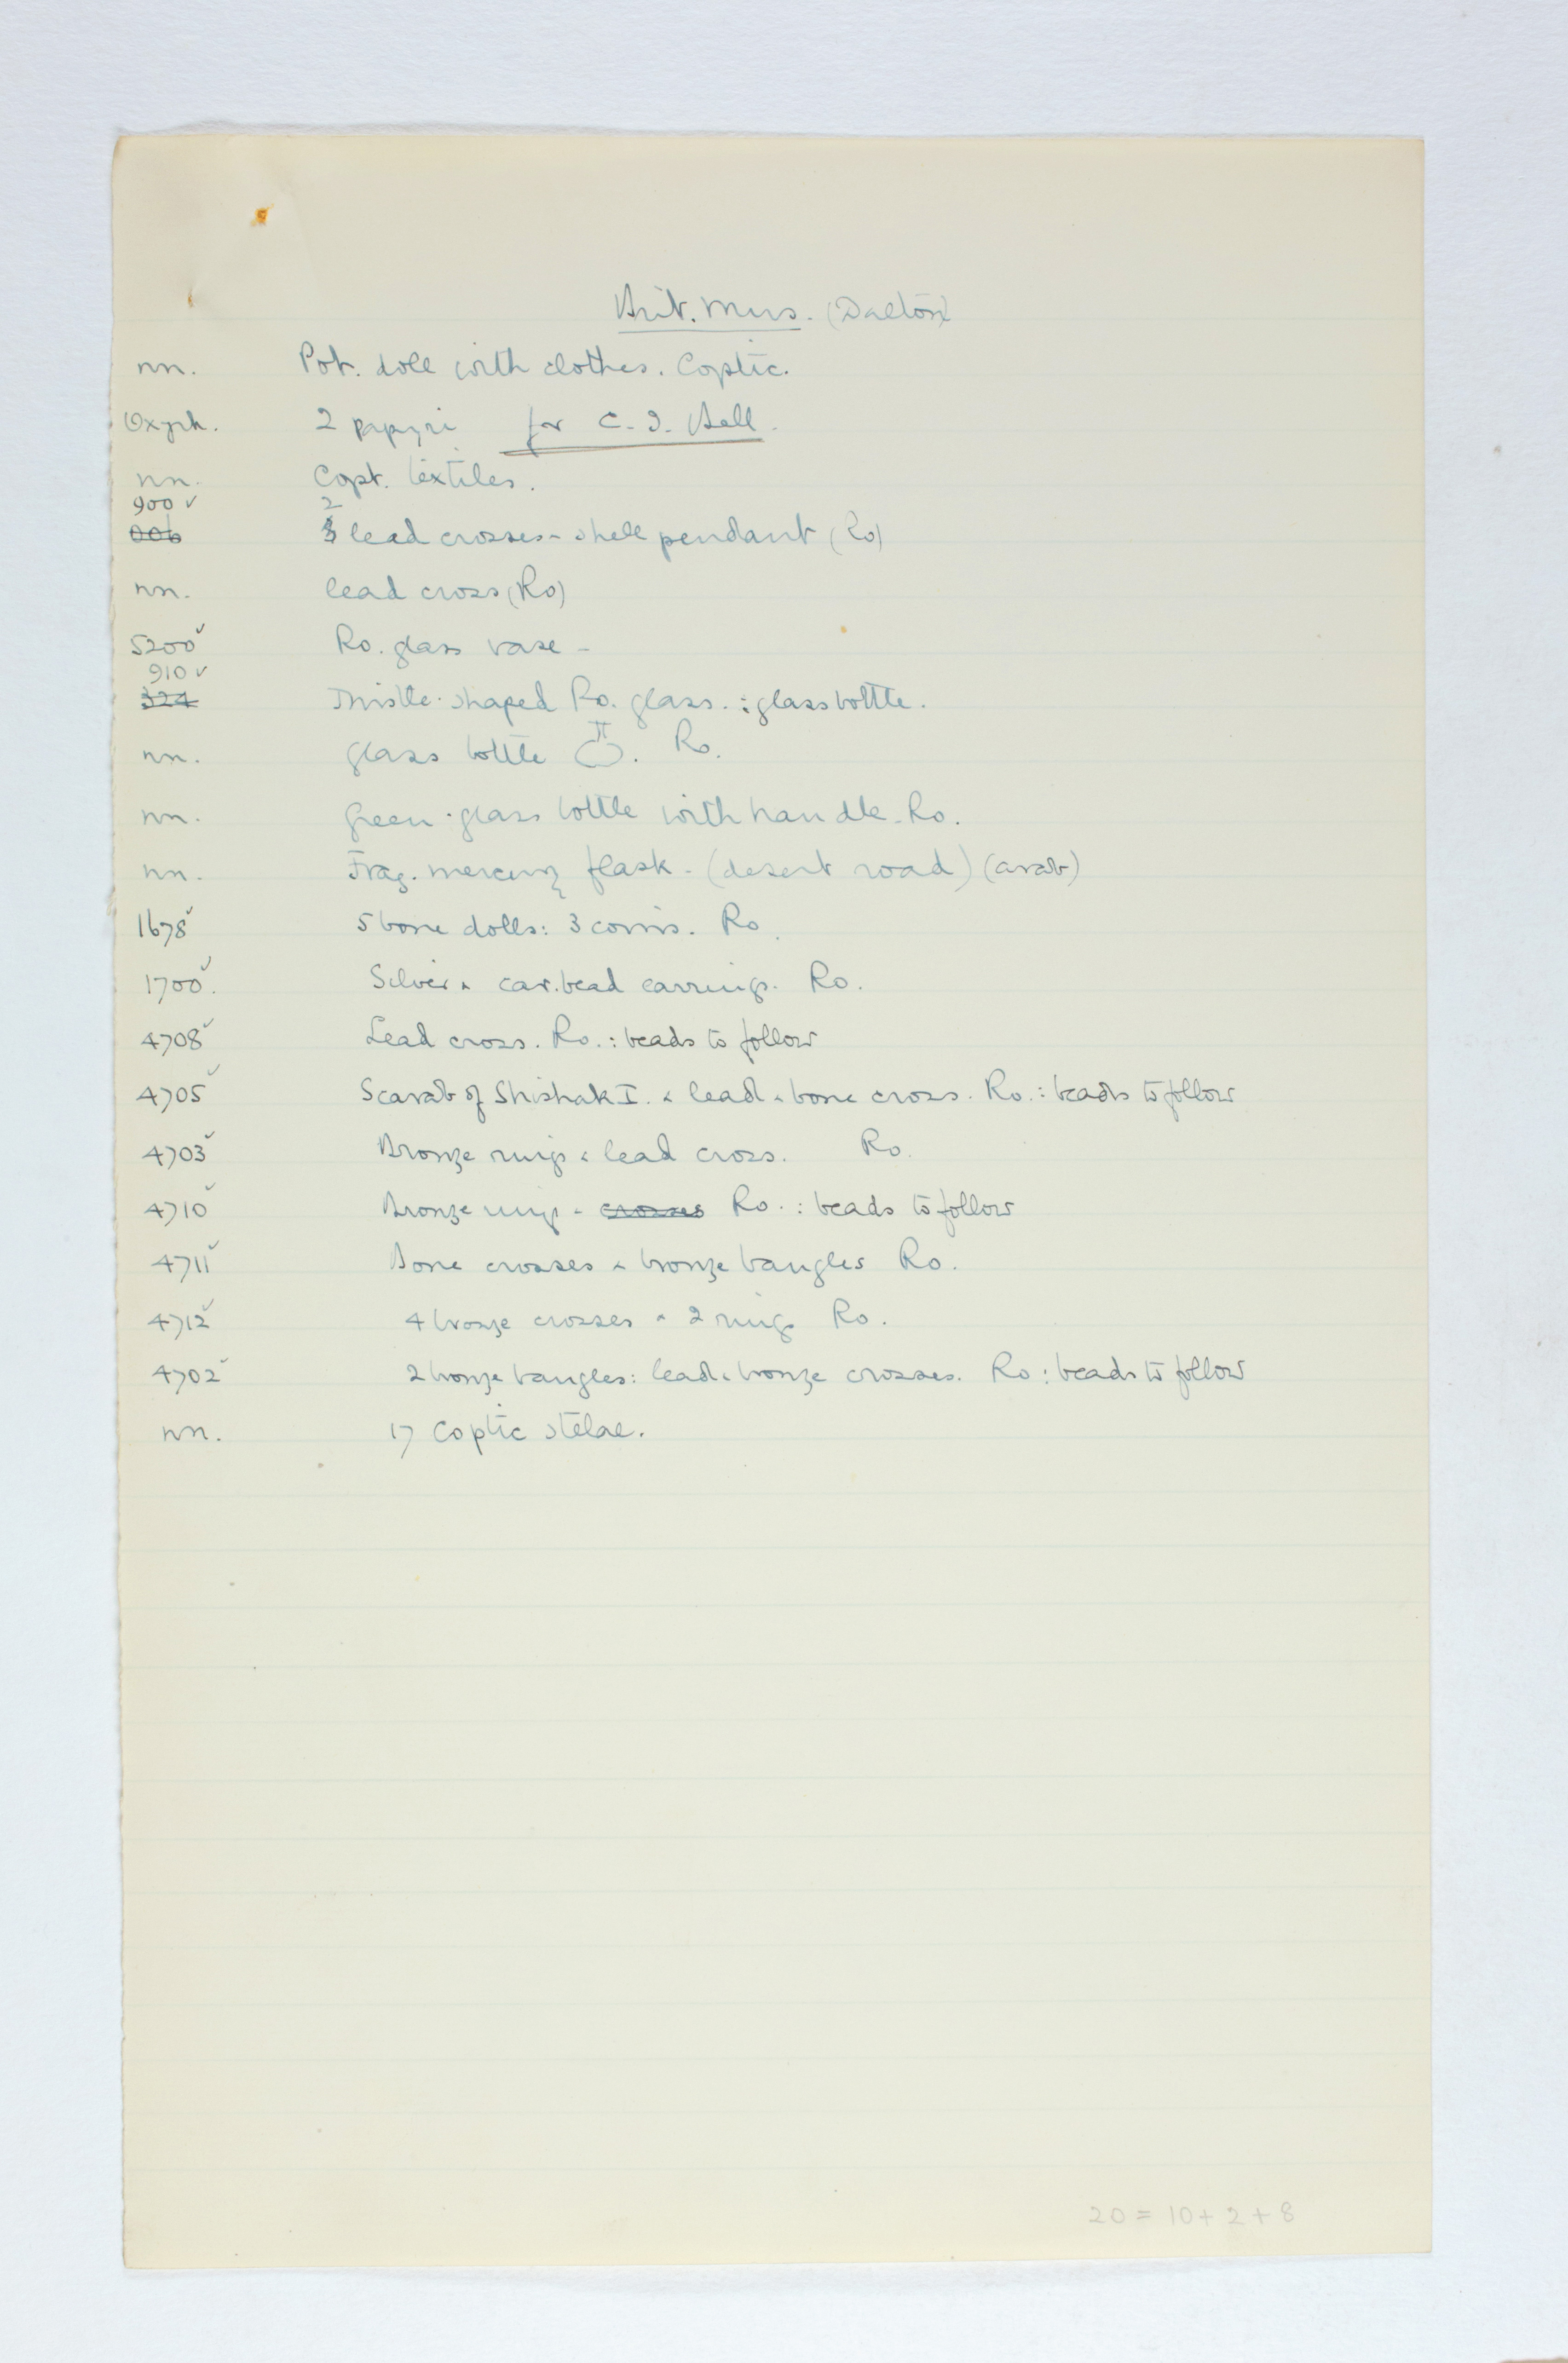 Brit. Mus. (Dalton)
nn. Pot. doll with clothes. Coptic.
Oxyrh. 2 papyri for C. I. Bell.
nn. Copt. textiles.
900 ✓ 2
006 3 lead crosses & shell pendant (Ro)
nn. lead cross (Ro)
5200 ✓ Ro. glass vase -
910 ✓
324 Thistle-shaped Ro. glass. : glass bottle.
nn. glass bottle . Ro.
nn. Green-glass bottle with handle - Ro.
nn. Frag. mercury flask - (desert road) (arab)
1678 ✓ 5 bone dolls: 3 coins. Ro.
1700 ✓ Silver & car. bead earrings. Ro.
4708 ✓ Lead cross. Ro. : beads to follow
4705 ✓ Scarab of Shishak I. & lead & bone cross. Ro. : beads to follow
4703 ✓ Bronze rings & lead cross. Ro.
4710 ✓ Bronze rings & crosses Ro. : beads to follow
4711 ✓ Bone crosses & bronze bangles Ro.
4712 ✓ 4 bronze crosses & 2 rings Ro.
4702 ✓ 2 bronze bangles: lead & bronze crosses. Ro : beads to follow
nn. 17 Coptic stelae.
20 = 10 + 2 + 8